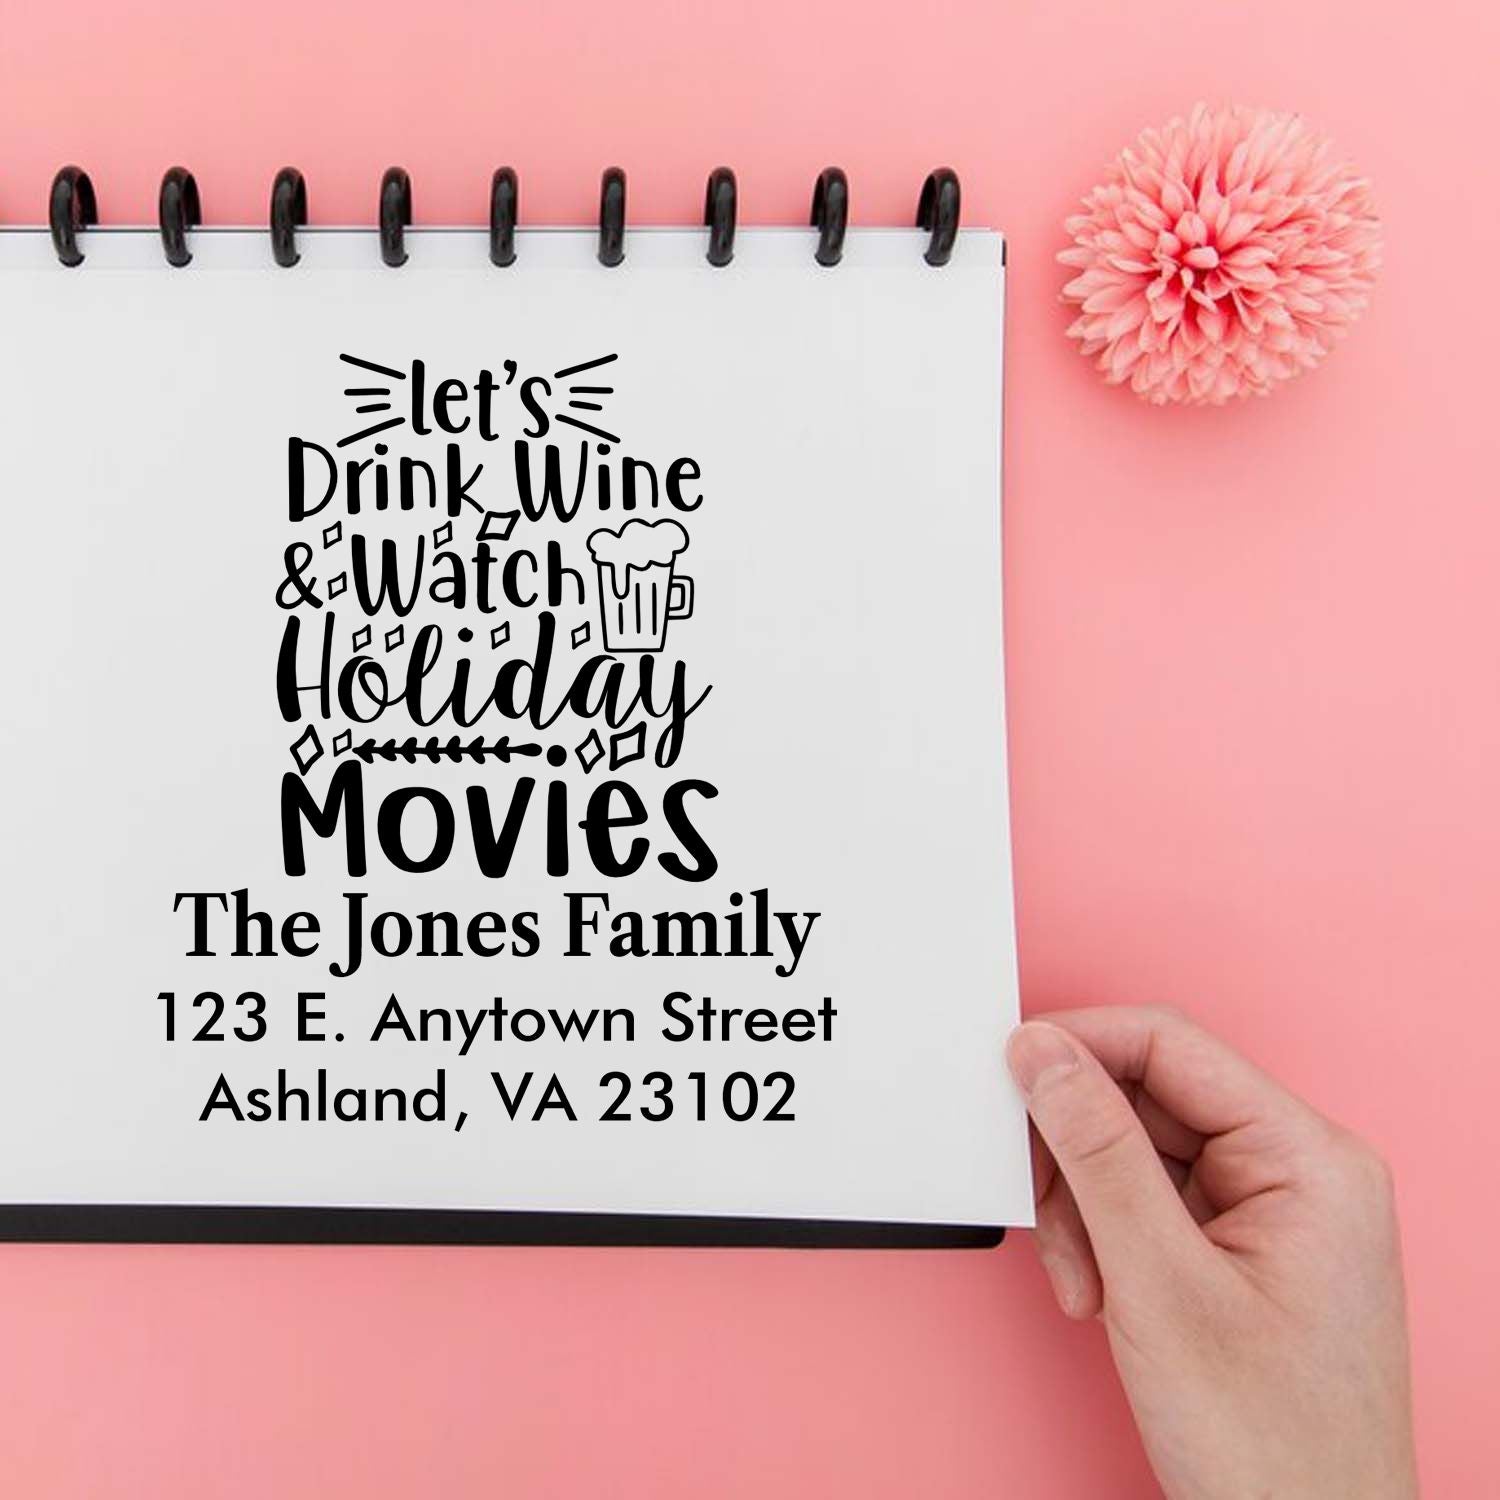 let's
Drink Wine
& Watch
Holiday
Movies
The Jones Family
123 E. Anytown Street
Ashland, VA 23102